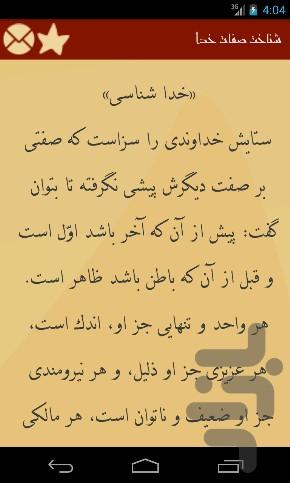 3G 4:04
شناخت صفات خدا
«خدا شناسی»
ستایش خداوندی را سزاست که صفتی
بر صفت دیگرش پیشی نگرفته تا بتوان
گفت: پیش از آن که آخر باشد اوّل است
و قبل از آن که باطن باشد ظاهر است.
هر واحد و تنهایی جز او، اندك است،
هر عزیزی جز او ذلیل، و هر نیرومندی
جز او ضعیف و ناتوان است، هر مالکی
بازار